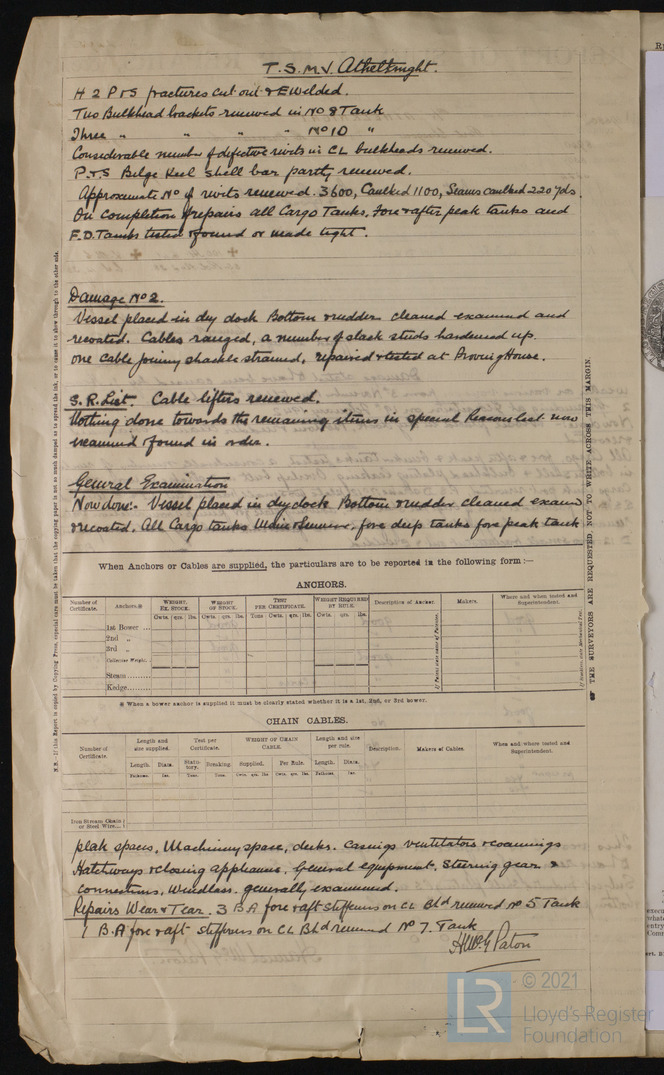 T.S.M.V. Athelknight.
H 2 P & S fractures cut out & E Welded.
Two Bulkhead brackets renewed in No 8 Tank
Three " " " " No 10 "
Considerable number of defective rivits in CL bulkheads renewed.
P & S Bilge Keel shell bar partly renewed.
Approximate No of rivits renewed. 3600, Caulked 1100, Seams caulked 220 yds.
On completion of repairs all Cargo Tanks, Fore & after peak tanks and
F.D. Tanks tested & found or made tight.
Damage No 2.
Vessel placed in dry dock Bottom & rudder cleaned examined and
recoated. Cables ranged, a number of slack studs hardened up.
one cable joining shackle strained, repaired & tested at Proving House.
S.R. List. Cable lifters renewed.
Nothing done towards the remaining items in special Reasons list now
examined & found in order.
General Examination
Now done:- Vessel placed in dry dock Bottom & rudder cleaned exam
& recoated. All Cargo tanks Main & Summer, fore deep tanks fore peak tank
When Anchors or Cables are supplied, the particulars are to be reported in the following form :—
ANCHORS.
Number of Certificate. Anchors.* WEIGHT. EX. STOCK. WEIGHT OF STOCK. TEST PER CERTIFICATE. WEIGHT REQUIRED BY RULE. Description of Anchor. Makers. Where and when tested and Superintendent.
Cwts. qrs. lbs. Cwts. qrs. lbs. Tons Cwts. qrs. lbs. Cwts. qrs. lbs.
1st Bower ...
2nd "
3rd "
Collective Weight.
Stream
Kedge
* When a bower anchor is supplied it must be clearly stated whether it is a 1st, 2nd, or 3rd bower.
CHAIN CABLES.
Number of Certificate. Length and size supplied. Test per Certificate. WEIGHT OF CHAIN CABLE. Length and size per rule. Description. Makers of Cables. When and where tested and Superintendent.
Length. Diam. Statutory. Breaking. Supplied. Per Rule. Length. Diam.
Fathoms. Ins. Tons. Tons. Cwts. qrs. lbs. Cwts. qrs. lbs. Fathoms. Ins.
Iron Stream Chain or Steel Wire...
peak spaces, Machinery space, decks. Casings ventilators & coamings
Hatchways & closing appliances. General equipment. Steering gear &
connections, Windlass. generally examined.
Repairs Wear & Tear. 3 B A fore & aft stiffeners on CL Bhd renewed No 5 Tank
1 B.A fore & aft stiffeners on CL Bhd renewed No 7. Tank
Paton
THE SURVEYORS ARE REQUESTED NOT TO WRITE ACROSS THIS MARGIN.
© 2021
LR
Lloyd's Register
Foundation